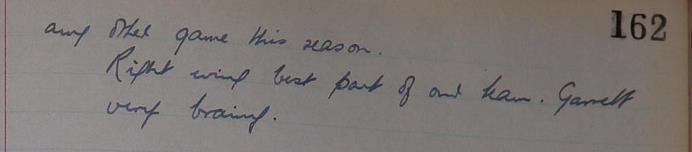 162
any other game this season.
Right wing best part of our team. Garrett
very brainy.